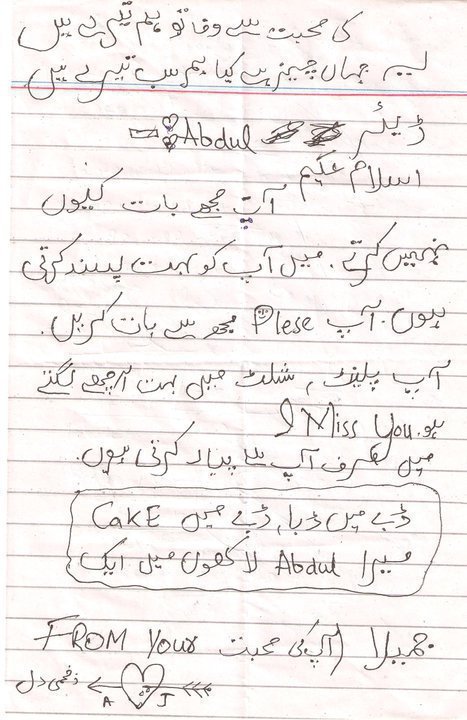 کی محبت سے وفا تو ہم تیرے ہیں
یہ جہاں چیز ہے کیا ہم سب تیرے ہیں
ڈیئر Abdul
اسلام علیکم
آپ مجھے بات کیوں
نہیں کرتے. میں آپ کو بہت پسند کرتی
ہوں. آپ Plese مجھ سے بات کریں.
آپ پلینٹ, شلٹ میں بہت اچھے لگتے
ہو. I Miss You
میں صرف آپ سے پیار کرتی ہوں.
ڈبے میں ڈبا, ڈبے میں CaKE
میرا Abdul لاکھوں میں ایک
جمیلا (آپ کی محبت FROM Your
A J زخمی دل